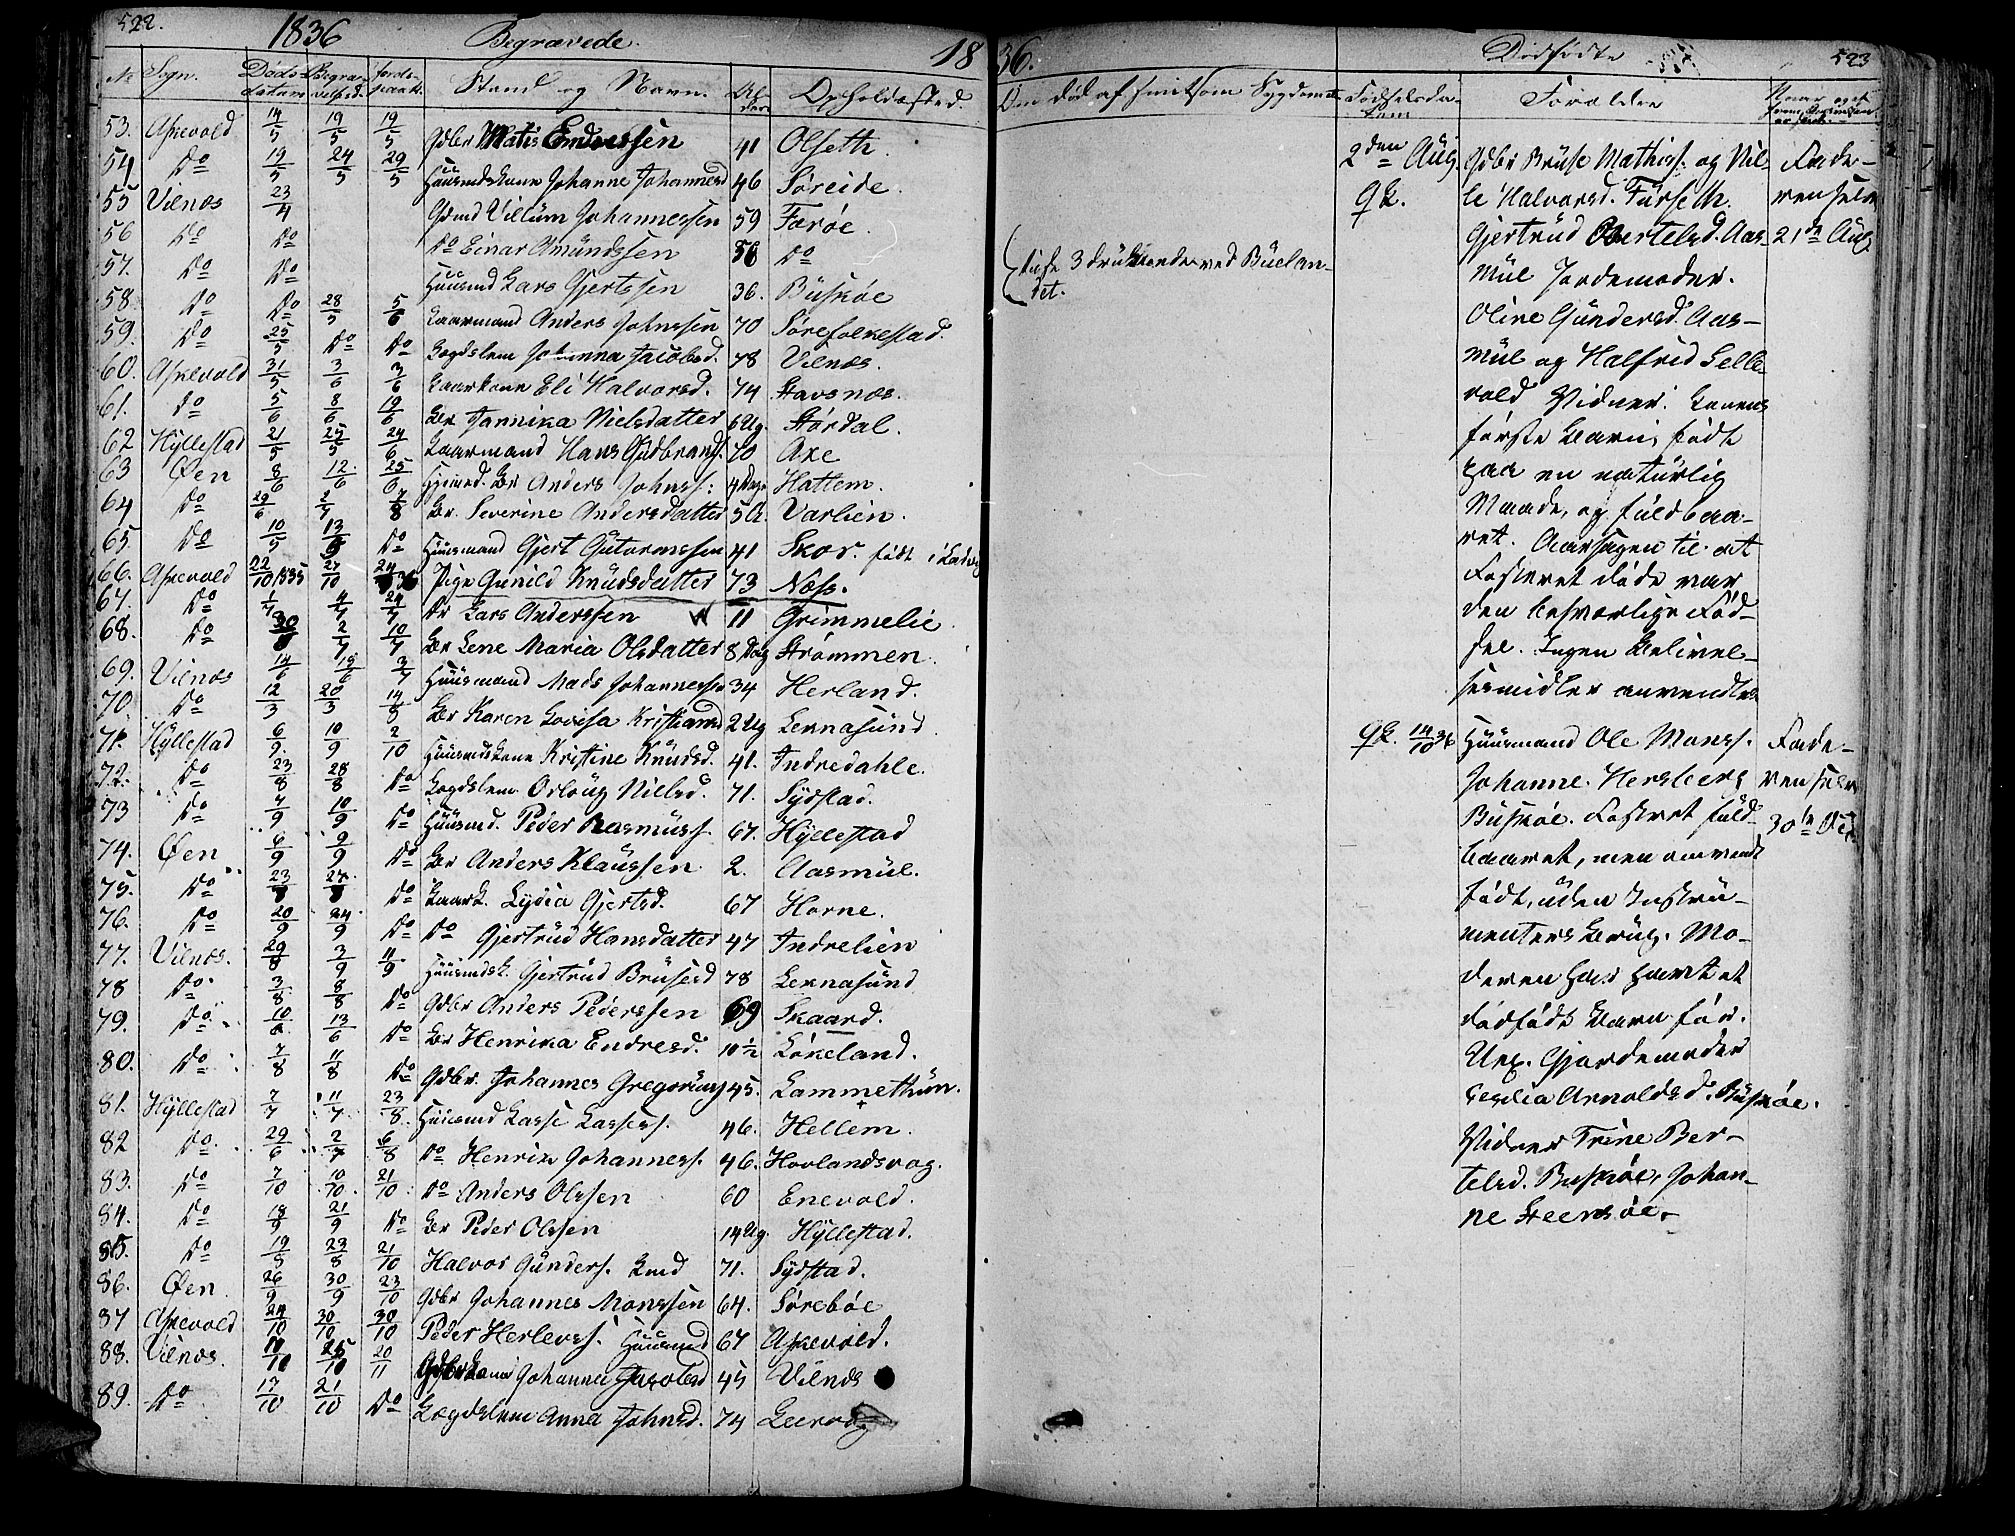 522. 1836 Begravede. 18
No Sogn. Døds-datum Begravelsesd. Jordpaak. Stand og Navn. Alder Opholdssted.
53. Askevold 14/5 19/5 19/5 Gdbr Matis Endressen 41 Olseth.
54 Do 19/5 24/5 29/5 Huusmdskone Johanne Johannesd 46 Søreide.
55 Vilnæs 23/4 Gdmd Villum Johannessen 59 Færøe.
56 Do Do Do Einar Amundssen 58 Do
57. Do Do Huusmd Lars Gjertssen 36. Buskøe
58. Do Do 28/5 5/6 Kaarmand Anders Johnssen 70 Sørefolkestad.
59. Do 25/5 Do Do Lægdslem Johanna Jacobsd. 78 Vilnæs.
60. Askevold 31/5 3/6 3/6 Kaarkone Eli Halvorsd. 74 Stavsnæs.
61. Do 5/6 8/6 19/6 Br Jannika Nielsdatter 6 Ug. Størdal.
62 Hyllestad 21/5 25/5 24/6 Kaarmand Hans Gudbrands. 70 Axe
63 Øen 8/6 12/6 25/6 Br Anders Johnss: 4 Dage Hattem.
64 Do 29/6 2/7 7/8 Br. Severine Andersdatter 5 A. Varlien.
65. Do 10/5 13/5 Do Huusmand Gjert Guttormssen 41 Skor. født i Ladvig
66. Askevold 22/10 1835 27/10 24/7 36 Pige Gunild Knudsdatter 73 Næss.
67. Do 1/7 4/7 24/7 Br Lars Anderssen 11 Grimmelie.
68. Do 30/6 2/7 10/7 Br Lene Maria Olsdatter 8 Dag Strømmen.
69. Vilnæs 14/6 18/6 3/7 Huusmand Mads Johannessen 34 Herland.
70. Do 12/3 20/3 14/8 Br Karen Lovisa Kristiansd 2 Ug Lernasund.
71. Hyllestad 6/9 10/9 2/10 Huusmdskone Kristine Knudsd. 41. Indredahle.
72. Do 23/8 28/8 Do Lægdslem Orløug Nielsd. 71. Sydstad.
73 Do 7/9 10/9 Do Huusmd. Peder Rasmuss. 67. Hyllestad
74. Øen 6/9 9/9 Do Br Anders Klaussen 2. Aasmul.
75. Do 23/8 27/8 Do Kaark. Lydia Gjertsd. 67 Horne.
76. Do 20/9 24/9 Do Do Gjertrud Hansdatter 47 Indrelien
77. Vilnæs. 29/8 3/9 11/9 Huusmdsk. Gjertrud Brusesd 78 Lernasund
78 Do 3/8 8/8 Do Gdbr Anders Pederssen 69 Skaard.
79. Do 10/6 13/6 Do Br Henrika Endresd. 10½ Løkeland.
80. Do 7/8 11/8 Do Gdbr. Johannes Gregoriuss 45. Lammethun.
81. Hyllestad 7/7 11/7 23/8 Huusmd Lasse Lassess. 46. Hellem.
82 Do 29/6 2/7 6/8 Do Henrik Johanness. 46. Hovlandsvog.
83. Do 7/10 10/10 21/10 Do Anders Olssen 60 Enevold.
84. Do 18/9 21/9 Do Br Peder Olssen 14 Ug. Hyllestad.
85. Do 19/8 23/8 21/10 Halvor Gunders. 71. Sydstad.
86. Øen 26/9 30/9 23/10 Gdbr Johannes Monssen 64. Sørebøe
87 Askevold 24/10 30/10 30/10 Peder Herlevss. Huusmd 67 Askevold.
88. Vilnæs. 10 25/10 20/11 Gdbrkone Johanna Jacobsd 45 Vilnæs
89. Do 17/10 21/10 Do Lægdslem Anna Johnsd. 74 Leervog
36. Dødfødte 523
Om død af smitsom Sygdom Fødselsdatum Forældre
disse 3 druknede ved Buelan-
det.
2den Aug.
Qk.
Gdbr Bruse Mathiss. og Nil-
le Halvorsd. Furseth.
Gjertrud Bertelsd. Aas-
mul Jordemoder.
Oline Gundersd. Aas-
mul og Halfrid Selle-
vold Vidner. Konens
første Barn, født
paa en naturlig
Maade, og fuldbaa-
ret. Aarsagen til at
Fosteret døde var
den besværlige Fød-
sel. Ingen Belivel-
sesmidler anvendtes
Fade-
ren selv
21de Aug
Qk. 14/10 36
Huusmand Ole Monss.
Johanne Hersberg
Buskøe. Fosteret fuld-
baaret, men omvendt
født, uden Instru-
menters Brug. Mo-
deren har havt et
dødfødt Barn før.
Ux. Gjordemoder
Arnoldsd. Buskøe.
Vidner Trine Ber-
telsd. Buskøe, Johan-
ne Steensøe.
Fade-
ren selv
30te Oct.